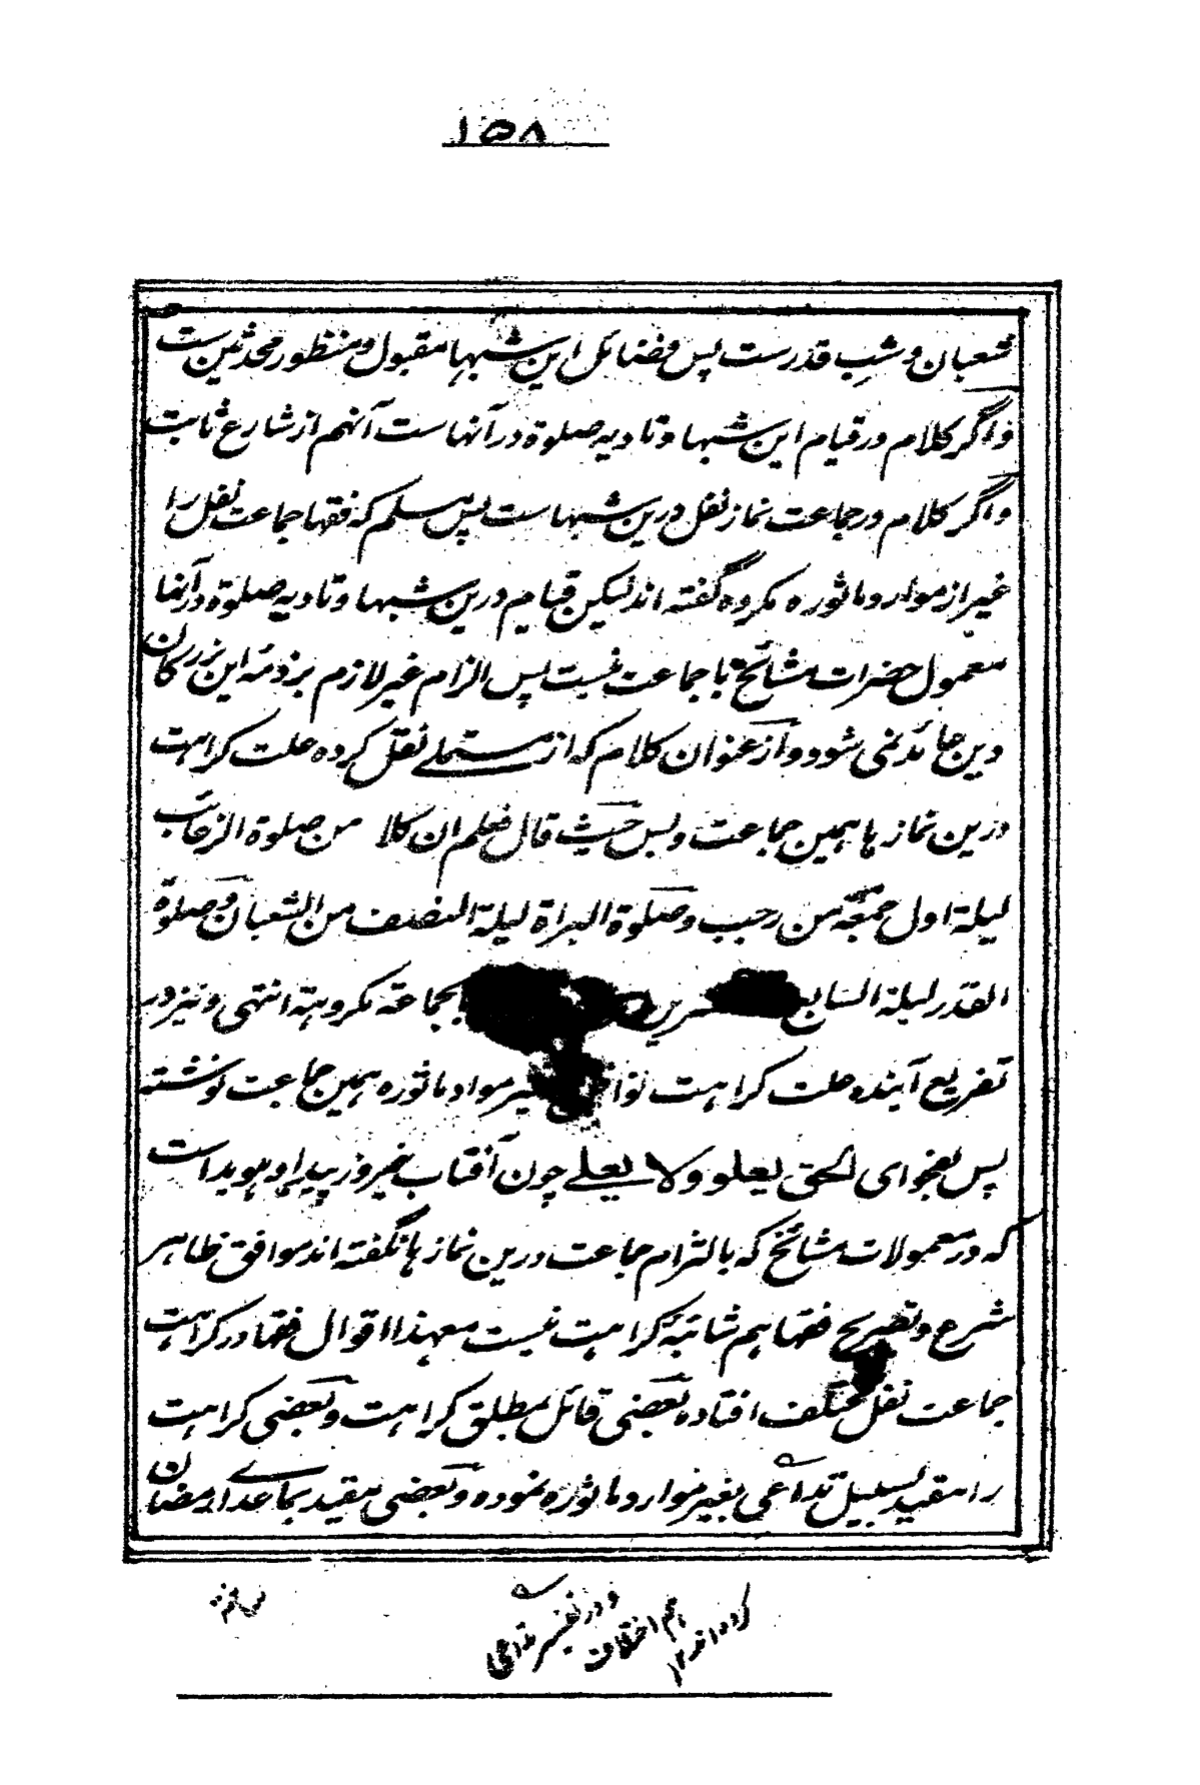 ۱۵۸
شعبان و شب قدرست پس فضائل این شبها مقبول و منظور محدثین ست
و اگر کلام در قیام این شبها و تادیه صلوة در آنهاست آنهم از شارع ثابت
و اگر کلام در جماعت نماز نفل درین شبهاست پس مسلم که فقها جماعت نفل را
غیر از موارد ماثوره مکروه گفته اند لیکن قیام درین شبها و تادیه صلوة در آنها
معمول حضرات مشائخ با جماعت نیست پس الزام غیر لازم بر ذمه این بزرگان
دین عائد نمی شود و از عنوان کلام که از مستملے نقل کرده علت کراهت
درین نمازها همین جماعت و بس حیث قال فعلم ان کلا من صلوة الرغائب
لیلة اول جمعة من رجب و صلوة البراة لیلة النصف من الشعبان و صلوة
القدر لیلة السابع بالجماعة مکروهة انتهی و نیز در
تفریع آینده علت کراهت موارد ماثوره همین جماعت نوشته
پس بفحوای الحق یعلو ولا یعلے چون آفتاب نیمروز پیدا و هویداست
که در معمولات مشائخ که بالتزام جماعت درین نمازها نگفته اند موافق ظاهر
شرع و تصریح فقها هم شائبه کراهت نیست معهذا اقوال فقها در کراهت
جماعت نفل مختلف افتاده بعضی قائل بمطلق کراهت و بعضی کراهت
را مقید بسبیل تداعی بغیر موارد ماثوره نموده و بعضی مقید بماعدا رمضان
کرده اند ۱۲
و در تفسیر تداعی
هم اختلاف